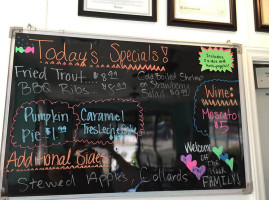 Today's Specials!
Fried Trout $8.99
BBQ Ribs
Cold Boiled Shrimp
or Strawberry
Salad
Includes
2 sides and
Wine:
Moscato
$5
Pumpkin
Pie $1
Caramel
Tres Leche
Additional Sides
Stewed Apples, Collards
Welcome
to the
FAMILY!